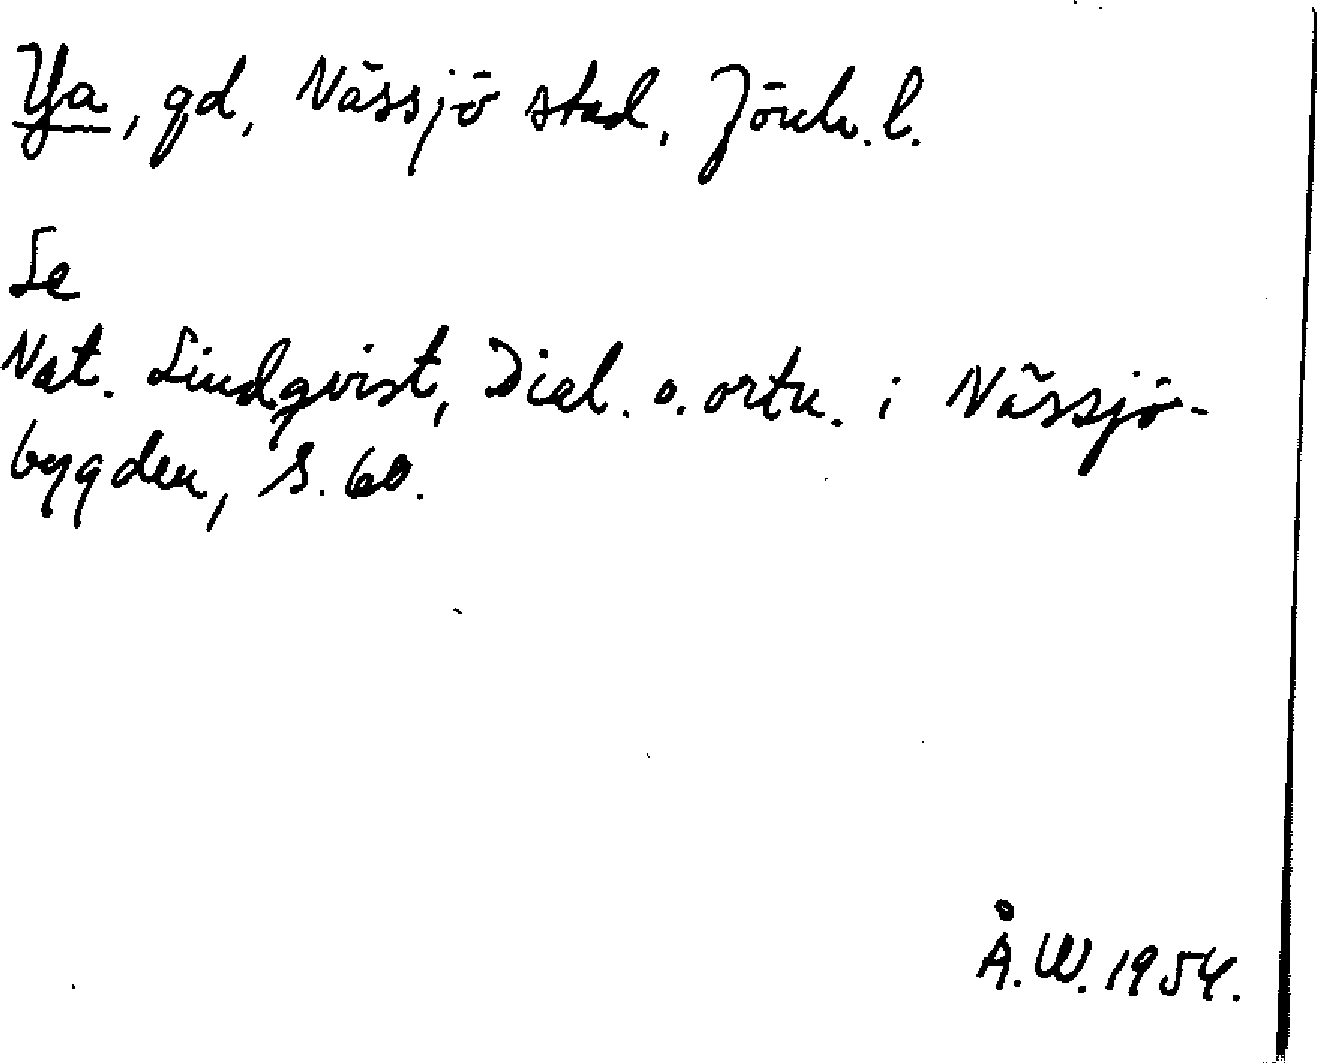 Ya, gd, Nässjö stad, Jönk. l.
Se
Nat. Lindqvist, Dial. o. ortn. i Nässjö-
bygden, s. 60.
Å. W. 1954.